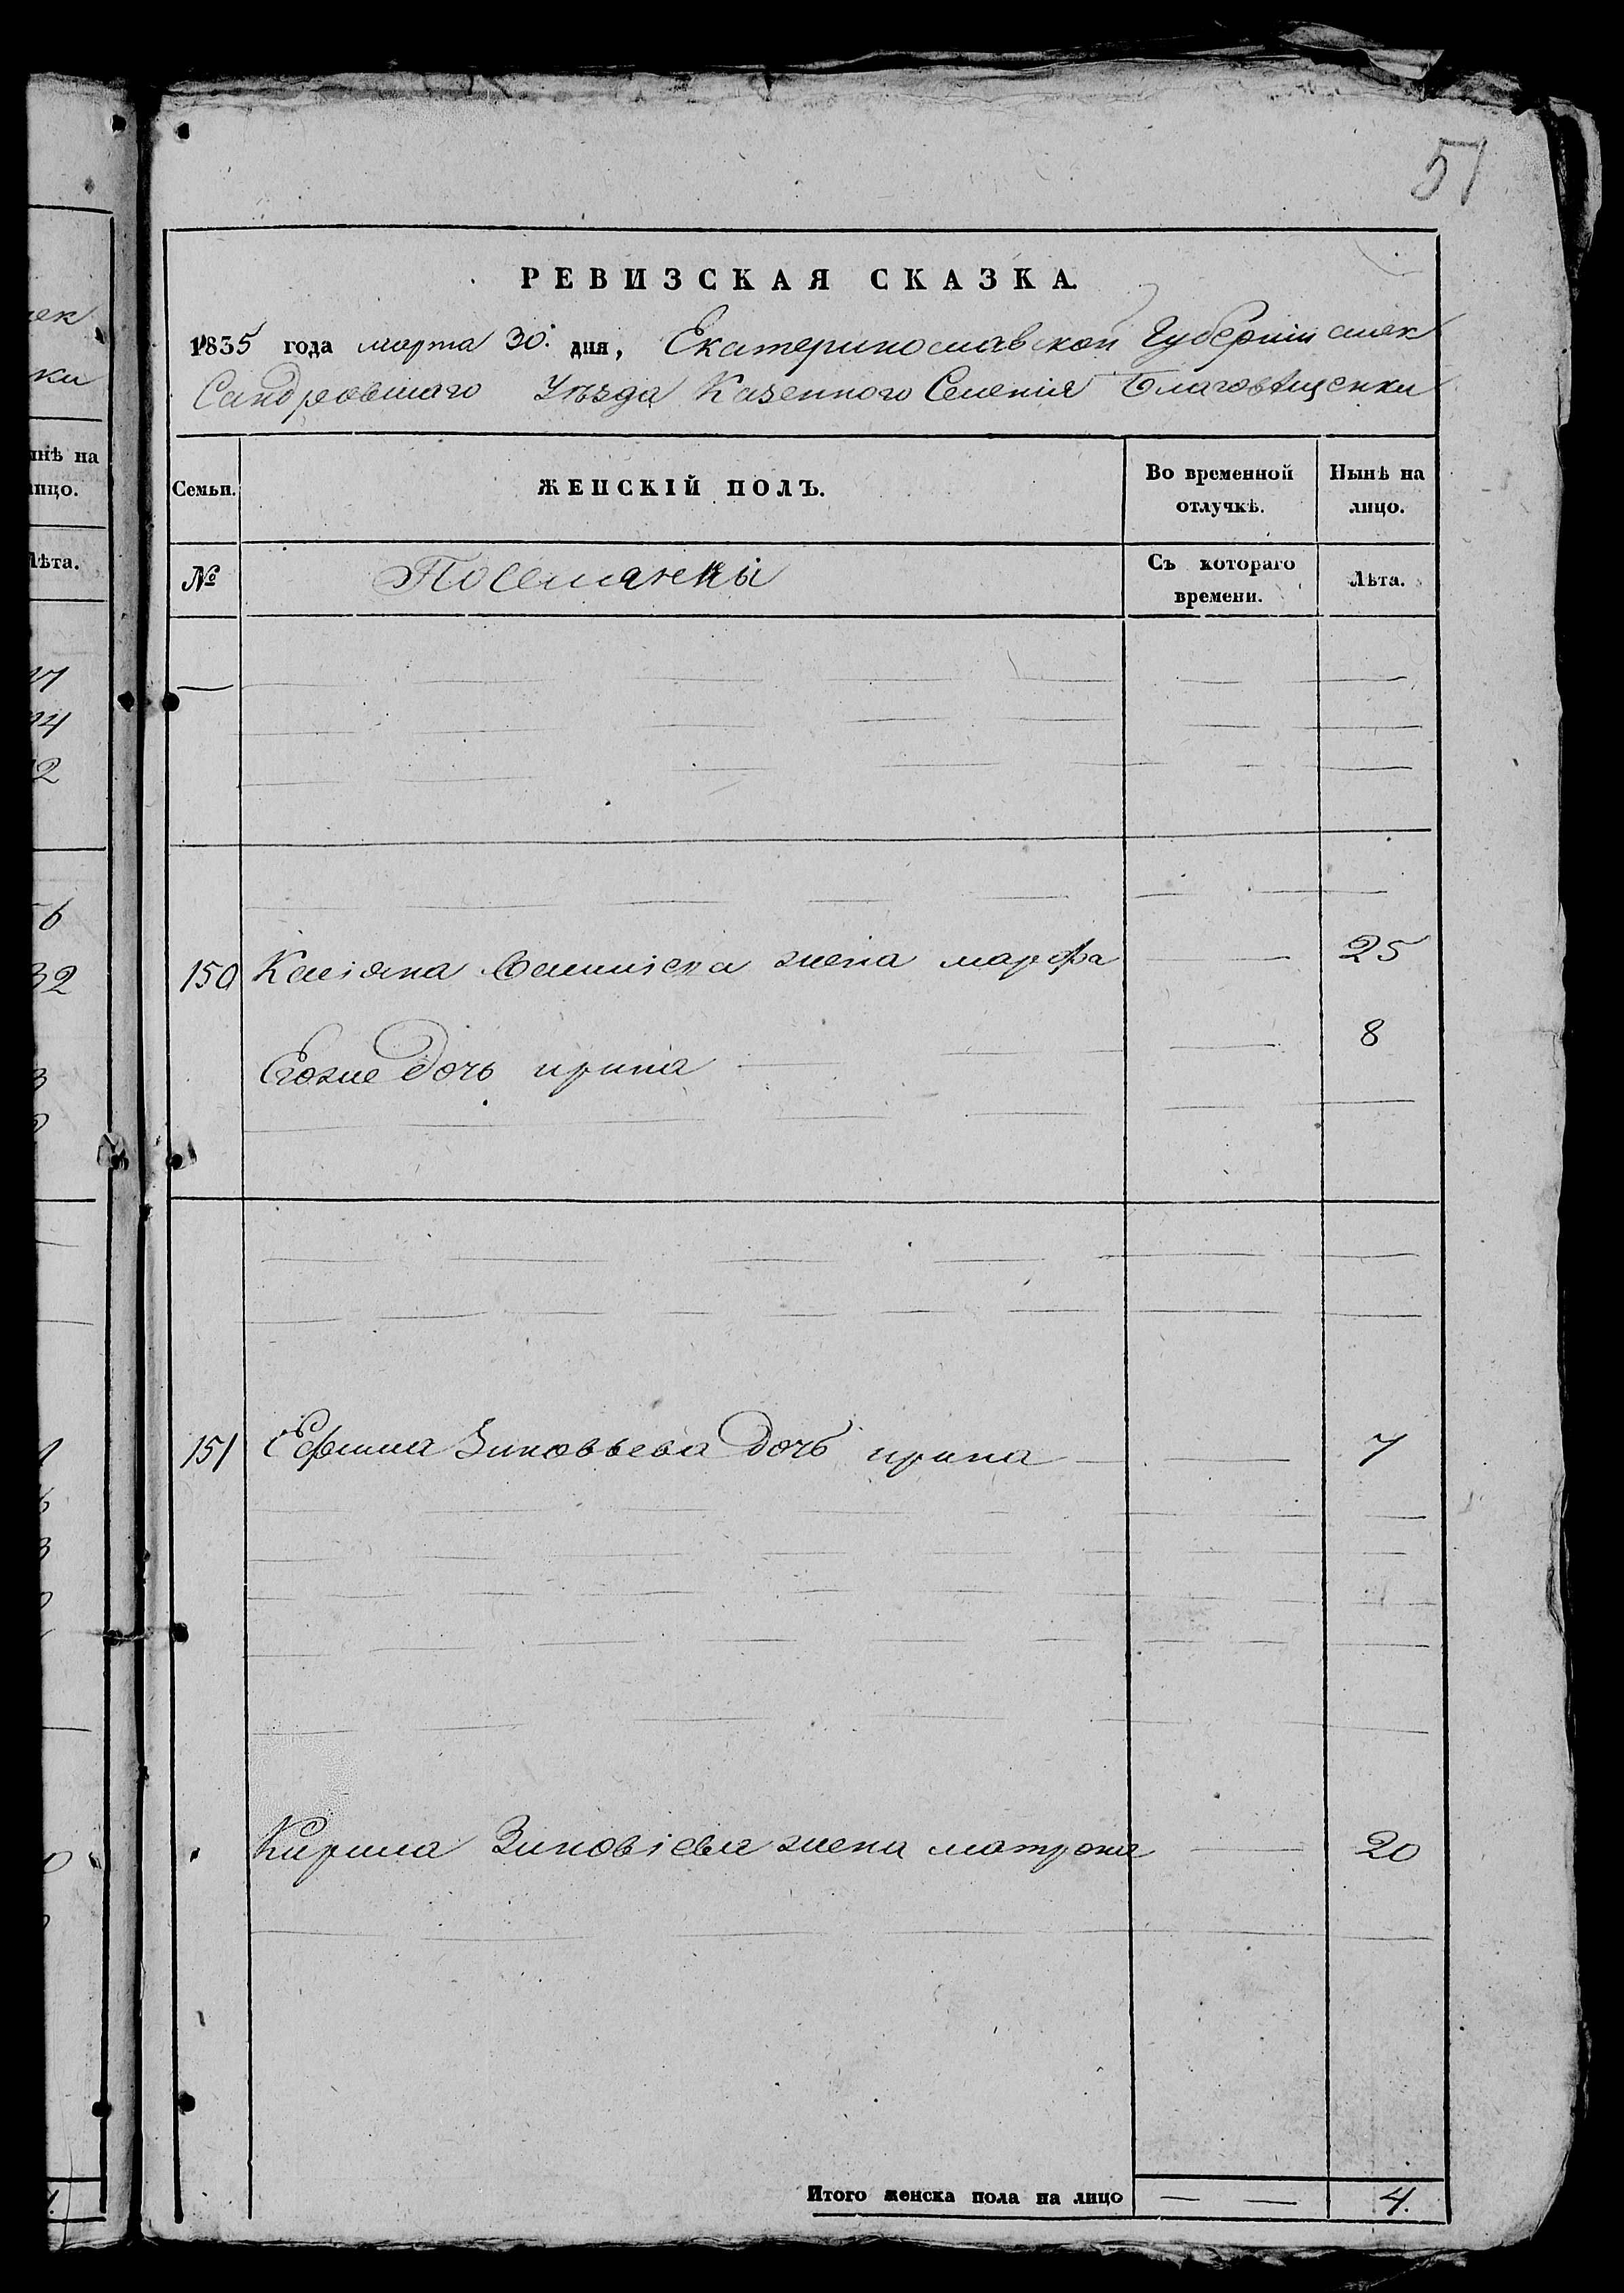 51
РЕВИЗСКАЯ СКАЗКА.
1835 года марта 30. дня, Екатеринославской Губернiи алек
Сандровшаго Уѣзда Казенного Селенiя Благовѣщенки
Семьи. ЖЕНСКIЙ ПОЛЪ. Во временной отлучкѣ. Нынѣ на лицо.
№ Поселянки Съ котораго времени. Лѣта.
150 жена марфа 25
Егоже дочь ирина 8
151 Ефима Зиновьева дочь ирина 7
Кирила Зиновiева жена матрона 20
Итого женска пола на лицо — — 4.
нѣ на
лицо.
Лѣта.
32